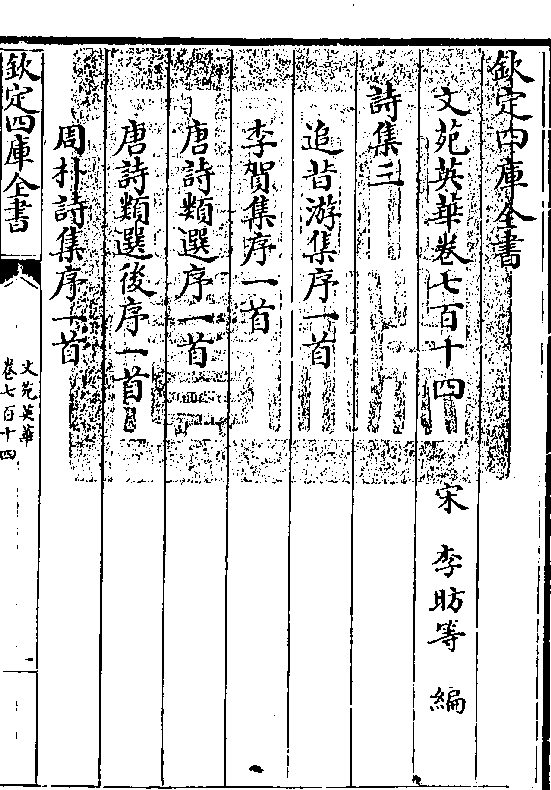 欽定四庫全書
文苑英華卷七百十四　宋　李昉等　編
詩集三
追昔游集序一首
李賀集序一首
唐詩類選序一首
唐詩類選後序一首
周朴詩集序一首
欽定四庫全書
文苑英華
卷七百十四